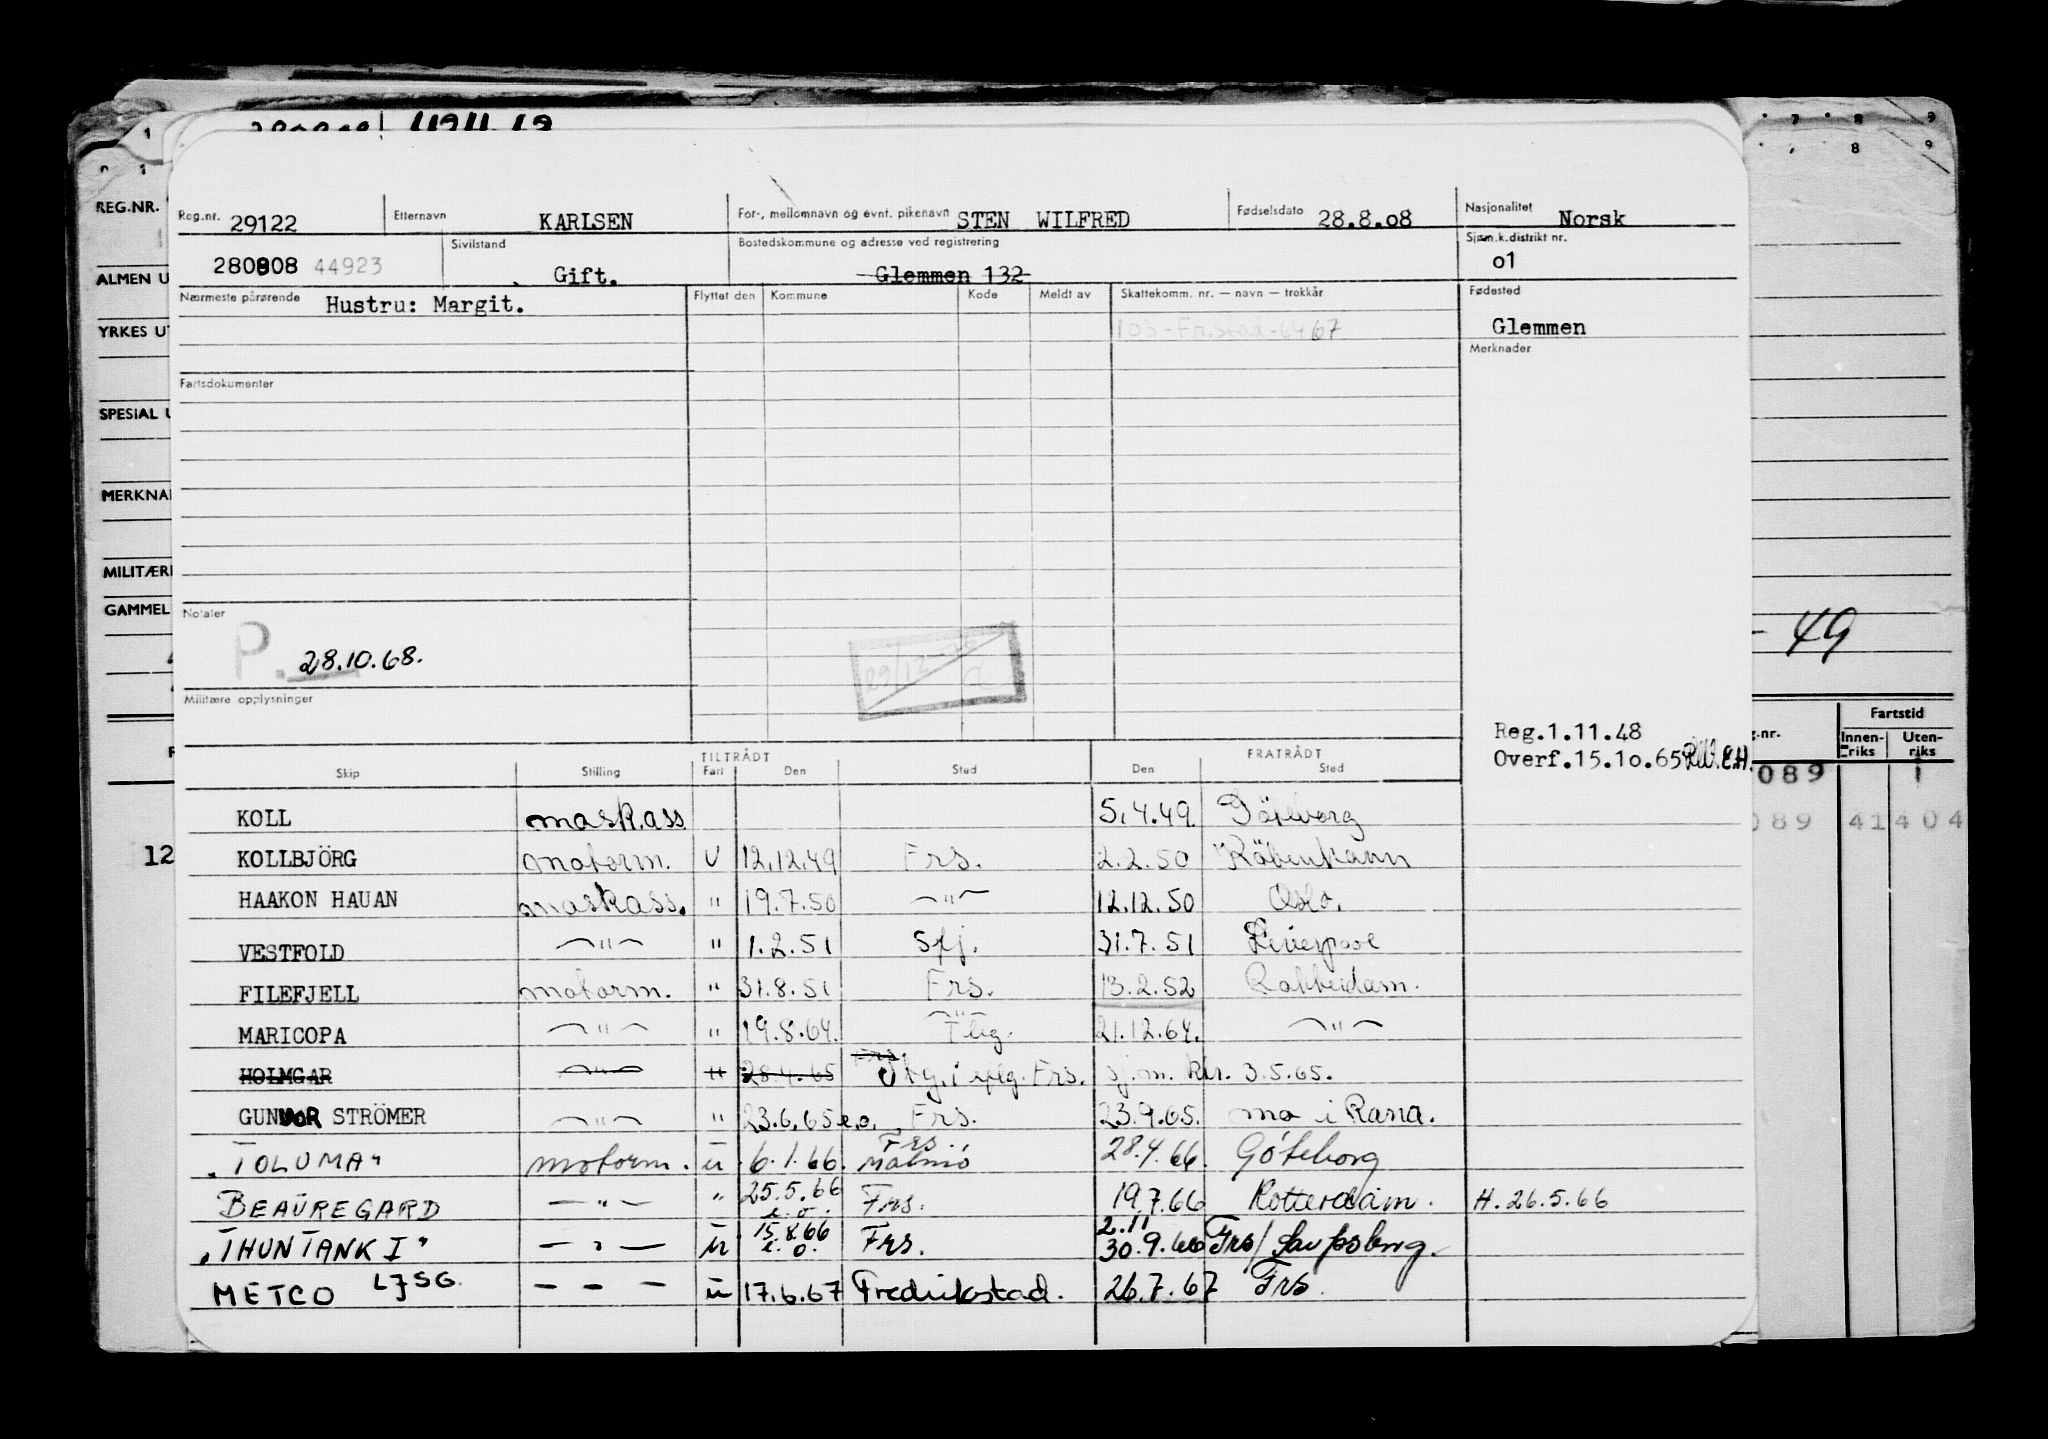 1 7 8 9
0 1 8 9
REG.NR.
ALMEN U
YRKES UT
SPESIAL U
MERKNA
MILITÆR
GAMMEL
12
- 49
Fartstid
g.nr. Innen-riks Uten-riks
089 1
089 41 404
Reg.nr. 29122 Etternavn KARLSEN For-, mellomnavn og evnt. pikenavn STEN WILFRED Fødselsdato 28.8.08 Nasjonalitet Norsk
280808 44923 Sivilstand Gift. Bostedskommune og adresse ved registrering Glemmen 132 Sjøm.k.distrikt nr. 01
Nærmeste pårørende Hustru: Margit. Flyttet den Kommune Kode Meldt av Skattekomm. nr. — navn — trekkår Fødested
103-Fr.stad-64 67 Glemmen
Merknader
Fartsdokumenter
Notater
P. 28.10.68.
29/12-76
Militære opplysninger
Reg.1.11.48
Overf.15.10.65 E.H.
TILTRÅDT FRATRÅDT
Skip Stilling Fart Den Sted Den Sted
KOLL mask.ass 5.4.49 Göteborg
KOLLBJÖRG motorm. U 12.12.49 Frs. 2.2.50 Köbenhavn
HAAKON HAUAN maskass. " 19.7.50 —"— 12.12.50 Oslo.
VESTFOLD —"— " 1.2.51 Sfj. 31.7.51 Liverpool
FILEFJELL motorm. " 31.8.51 Frs. 13.2.52 Rotterdam.
MARICOPA —"— " 19.8.64. —"— Tbg. 21.12.64. —"—
HOLMGAR —"— " 28.4.65 Frs. Strg. i flg. Frs. sj.m. ktr. 3.5.65.
GUNVOR STRÖMER —"— " 23.6.65 e.o. Frs. 23.9.65. mo i Rana.
"TOLUMA" motorm. u 6.1.66. Frs. Malmö 28.4.66. Göteborg
BEAUREGARD —"— " 25.5.66 e.o. Frs. 19.7.66 Rotterdam. H. 26.5.66
"THUNTANK I" —"— u 15.8.66 e.o. Frs. 2.11 30.9.66 Frs/
METCO LJSG — — — u 17.6.67 Fredrikstad. 26.7.67 Frs.